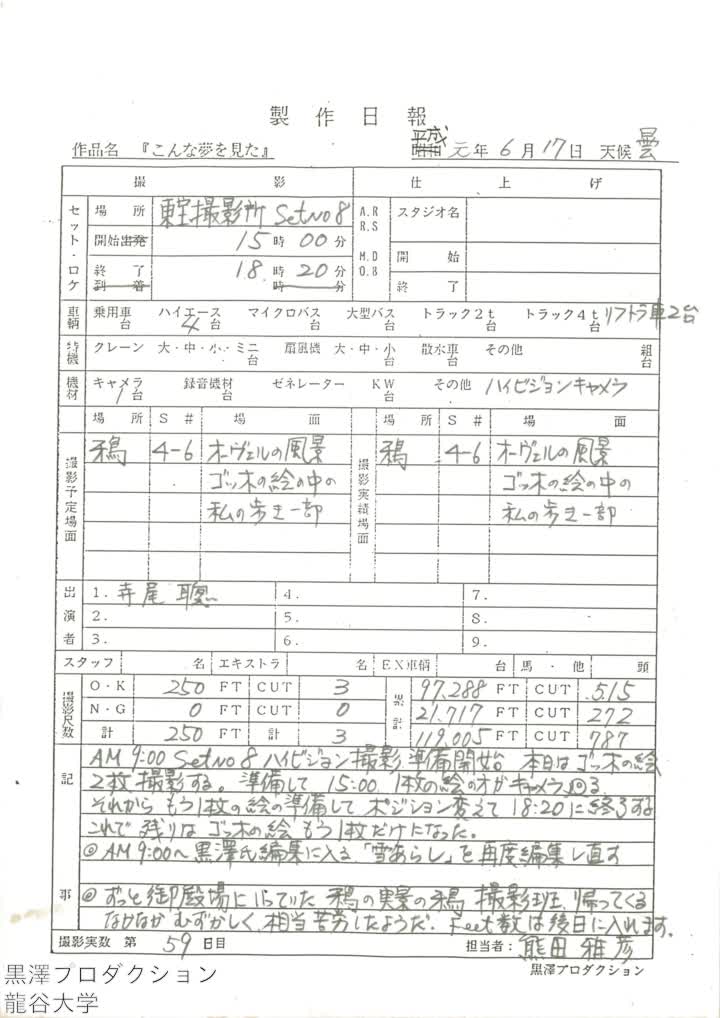 製作日報
作品名 『こんな夢を見た』 平成元年6月17日 天候 曇
撮影 仕上げ
セット・ロケ 場所 東宝撮影所 Set No 8 A.R R.S スタジオ名
開始出発 15時00分 M.D O.B 開始
終了到着 18時20分 時分 終了
車輌 乗用車 台 ハイエース 4台 マイクロバス 台 大型バス 台 トラック2t 台 トラック4t 台 リフトラ車2台
特機 クレーン 大・中・小・ミニ 台 扇風機 大・中・小 台 散水車 台 その他 組 台
機材 キャメラ 1台 録音機材 台 ゼネレーター KW 台 その他 ハイビジョンキャメラ
場所 S# 場面 場所 S# 場面
撮影予定場面 鴉 4-6 オーヴェルの風景 撮影実績場面 鴉 4-6 オーヴェルの風景
ゴッホの絵の中の ゴッホの絵の中の
私の歩き一部 私の歩き一部
出演者 1. 寺尾聰 4. 7.
2. 5. 8.
3. 6. 9.
スタッフ 名 エキストラ 名 EX車輌 台 馬・他 頭
撮影尺数 O・K 250 FT CUT 3 累計 97,288 FT CUT 515
N・G 0 FT CUT 0 21,717 FT CUT 272
計 250 FT 計 3 119,005 FT CUT 787
記事 AM 9:00 Set No 8 ハイビジョン撮影準備開始 本日はゴッホの絵
2枚撮影する。準備して 15:00 1枚の絵の方がキャメラ回る
それから もう1枚の絵の準備して ポジション変えて 18:20に終了する
これで 残りは ゴッホの絵 もう1枚だけになった。
◎ AM 9:00〜 黒澤氏編集に入る 「雪あらし」を再度編集し直す
◎ ずっと御殿場に行っていた 鴉の実景の鴉 撮影班、帰ってくる
なかなか むずかしく、相当苦労したようだ. Feet数は後日に入れます。
撮影実数 第59日目 担当者: 熊田雅彦
黒澤プロダクション
黒澤プロダクション
龍谷大学